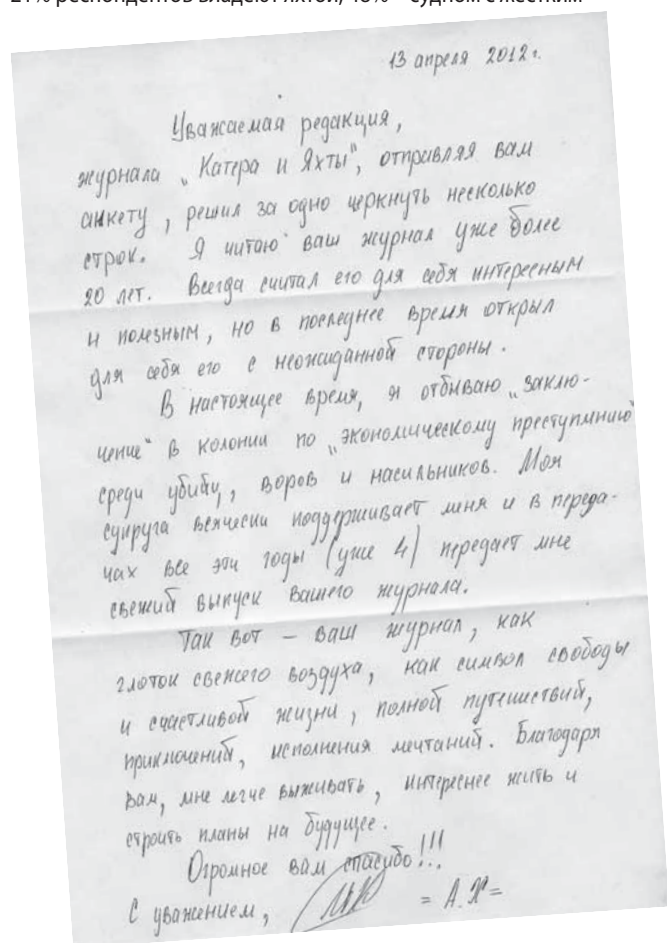 13 апреля 2012г.
Уважаемая редакция,
журнала „Катера и Яхты", отправляя вам
анкету, решил за одно черкнуть несколько
строк. Я читаю ваш журнал уже более
20 лет. Всегда считал его для себя интересным
и полезным, но в последнее время открыл
для себя его с неожиданной стороны.
В настоящее время, я отбываю „заклю-
чение" в колонии по „экономическому преступлению"
среди убийц, воров и насильников. Моя
супруга всячески поддерживает меня и в переда-
чах все эти годы (уже 4) передает мне
свежий выпуск вашего журнала.
Так вот – ваш журнал, как
глоток свежего воздуха, как символ свободы
и счастливой жизни, полной путешествий,
приключений, исполнения мечтаний. Благодаря
вам, мне легче выживать, интереснее жить и
строить планы на будущее.
Огромное вам спасибо!!!
С уважением, = А.Х =